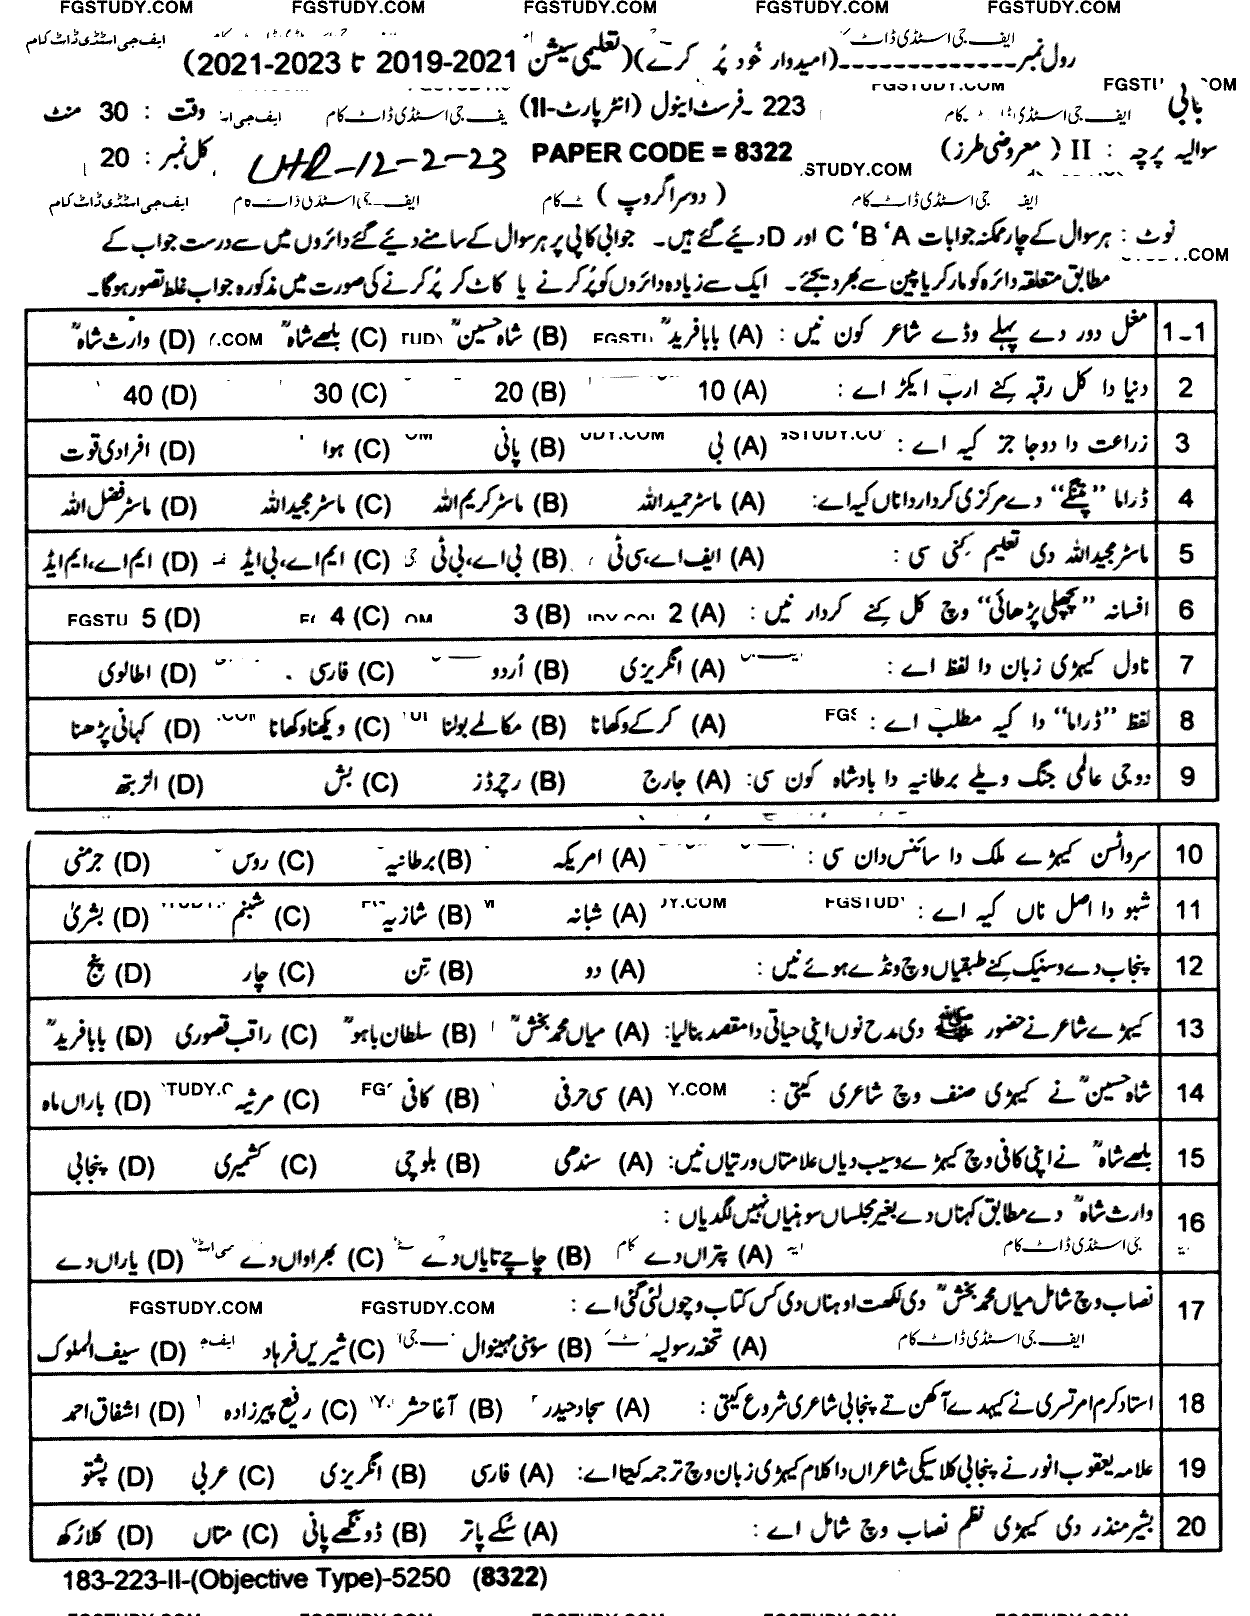 FGSTUDY.COM FGSTUDY.COM FGSTUDY.COM FGSTUDY.COM FGSTUDY.COM
رول نمبر-------------(امیدوار خود پُر کرے)(تعلیمی سیشن 2021-2019 تا 2023-2021)
223 ۔فرسٹ اینول (انٹر پارٹ-II) وقت : 30 منٹ
سوالیہ پرچہ : II (معروضی طرز) PAPER CODE = 8322 LHR-12-2-23 کل نمبر : 20
(دوسرا گروپ)
نوٹ : ہر سوال کے چار ممکنہ جوابات A، B، C اور D دیئے گئے ہیں۔ جوابی کاپی پر ہر سوال کے سامنے دیئے گئے دائروں میں سے درست جواب کے
مطابق متعلقہ دائرہ کو مارکر یا پین سے بھر دیجئے۔ ایک سے زیادہ دائروں کو پُر کرنے یا کاٹ کر پُر کرنے کی صورت میں مذکورہ جواب غلط تصور ہوگا۔
1-1 مغل دور دے پہلے وڈے شاعر کون نیں : (A) بابا فریدؒ (B) شاہ حسینؒ (C) بلھے شاہؒ (D) وارث شاہؒ
2 دنیا دا کل رقبہ کِنے ارب ایکڑ اے : (A) 10 (B) 20 (C) 30 (D) 40
3 زراعت دا دوجا جز کیہ اے : (A) بی (B) پانی (C) ہوا (D) افرادی قوت
4 ڈراما "پتنگے" دے مرکزی کردار دا ناں کیہ اے: (A) ماسٹر حمید اللہ (B) ماسٹر کریم اللہ (C) ماسٹر مجید اللہ (D) ماسٹر فضل اللہ
5 ماسٹر مجید اللہ دی تعلیم کِنی سی : (A) ایف اے، سی ٹی (B) بی اے، بی ٹی (C) ایم اے، بی ایڈ (D) ایم اے، ایم ایڈ
6 افسانہ "پچھلی پڑھائی" وچ کل کِنے کردار نیں : (A) 2 (B) 3 (C) 4 (D) 5
7 ناول کیہڑی زبان دا لفظ اے : (A) انگریزی (B) اُردو (C) فارسی (D) اطالوی
8 لفظ "ڈراما" دا کیہ مطلب اے : (A) کرکے وکھانا (B) مکالمے بولنا (C) ویکھنا وکھانا (D) کہانی پڑھنا
9 دوجی عالمی جنگ ویلے برطانیہ دا بادشاہ کون سی: (A) جارج (B) رچرڈز (C) بش (D) الزبتھ
10 سروائسن کیہڑے ملک دا سائنس دان سی : (A) امریکہ (B) برطانیہ (C) روس (D) جرمنی
11 شبو دا اصل ناں کیہ اے : (A) شبانہ (B) شازیہ (C) شبنم (D) بشریٰ
12 پنجاب دے وسنیک کِنے طبقیاں وچ ونڈے ہوئے نیں : (A) دو (B) تِن (C) چار (D) پنج
13 کیہڑے شاعر نے حضور ﷺ دی مدح نوں اپنی حیاتی دا مقصد بنا لیا: (A) میاں محمد بخشؒ (B) سلطان باہوؒ (C) راقب قصوری (D) بابا فریدؒ
14 شاہ حسینؒ نے کیہڑی صنف وچ شاعری کیتی : (A) سی حرفی (B) کافی (C) مرثیہ (D) باراں ماہ
15 بلھے شاہؒ نے اپنی کافی وچ کیہڑے وسیب دیاں علامتاں ورتیاں نیں: (A) سندھی (B) بلوچی (C) کشمیری (D) پنجابی
16 وارث شاہؒ دے مطابق کہناں دے بغیر مجلساں سوہنیاں نہیں لگدیاں :
(A) پتراں دے (B) چاچے تایاں دے (C) بھراواں دے (D) یاراں دے
17 نصاب وچ شامل میاں محمد بخشؒ دی لکھت اوہناں دی کس کتاب وچوں لئی گئی اے : FGSTUDY.COM FGSTUDY.COM
(A) تحفہ رسولیہ (B) سوہنی مہینوال (C) شیریں فرہاد (D) سیف الملوک
18 استاد کرم امرتسری نے کیہدے آکھن تے پنجابی شاعری شروع کیتی : (A) سجاد حیدر (B) آغا حشر (C) رفیع پیرزادہ (D) اشفاق احمد
19 علامہ یعقوب انور نے پنجابی کلاسیکی شاعراں دا کلام کیہڑی زبان وچ ترجمہ کیتا اے: (A) فارسی (B) انگریزی (C) عربی (D) پشتو
20 بشیر منذر دی کیہڑی نظم نصاب وچ شامل اے : (A) سُکے پاتر (B) ڈونگھے پانی (C) متاں (D) کلا رُکھ
183-223-II-(Objective Type)-5250 (8322)